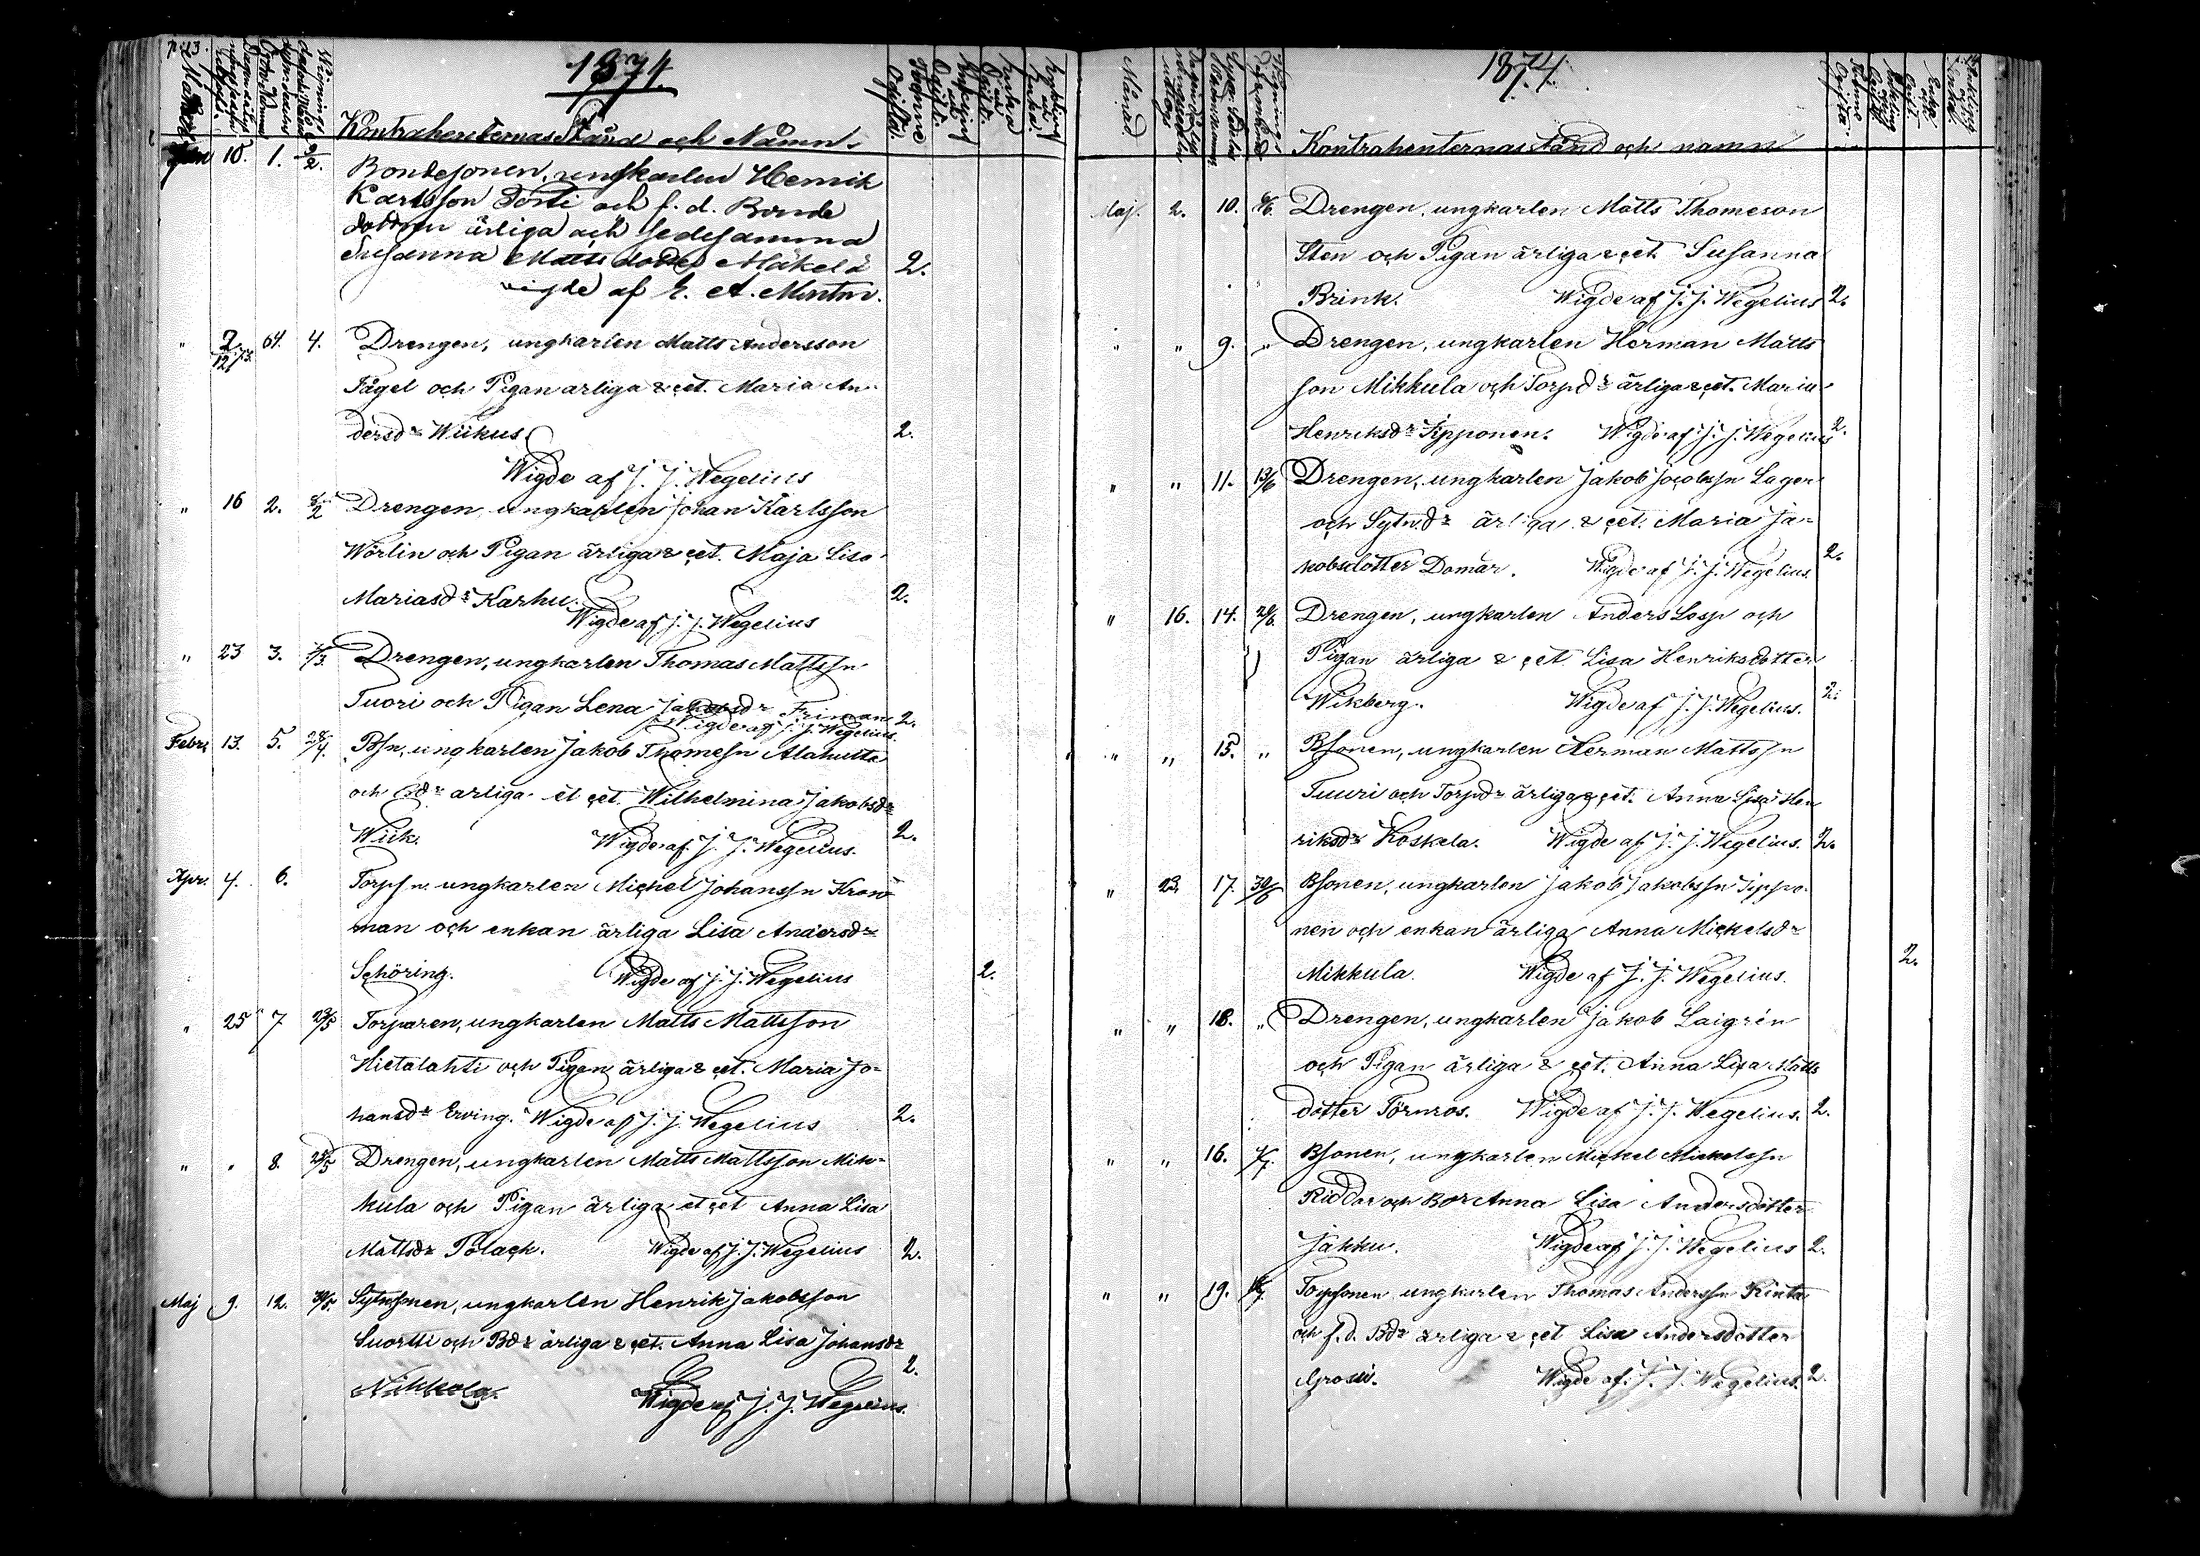 1874.
Kontrahenternas Stånd och Nämn.
Jan 10. 1. 9/2. Bondesonen, ungkarlen Henrik
Karlsson Torti och f. d. Bonde
dottren ärliga och sedesamma
Susanna Matts dotter Mäkelä 2.
vigde af E. A. Montin.
" 2/12 73. 64. 4. Drengen, ungkarlen Matts Andersson
Pågel och Pigan ärliga & çet. Maria An-
dersdr Wiikus. 2.
Wigde af J. J. Wegelius
" 16 2. 8/2 Drengen, ungkarlen Johan Karlsson
Wörlin och Pigan ärliga & çet. Maja Lisa
Mariasdr Karhu. 2.
Wigde af J. J. Wegelius
" 23 3. Drengen, ungkarlen Thomas Mattssn
Tuori och Pigan Lena Jakobsdr Friman 2.
Wigde af J. J. Wegelius.
Febr. 13. 5. Bsn, ungkarlen Jakob Thomesn Alahutta
och Bdr ärliga et çet. Wilhelmina Jakobsdr
Wiik. Wigde af J. J. Wegelius. 2.
Apr. 4. 6. Torpsn. ungkarlen Miçkel Johanssn Kron-
man och enkan ärliga Lisa Andersdr
Schöring. Wigde af J. J. Wegelius 2.
" 25 7 Torparen, ungkarlen Matts Mattsson
Hietalahti och Pigan ärliga & çet. Maria Jo-
hansdr Erving. Wigde af J. J. Wegelius 2.
" " 8. Drengen, ungkarlen Matts Mattsson Mik-
kula och Pigan ärliga et çet Anna Lisa
Mattsdr Polaçk. Wigde af J. J. Wegelius 2.
Maj 9. 12. Sytnsonen, ungkarlen Henrik Jakobsson
Suortti och Bdr ärliga & çet. Anna Lisa Johansdr
Nikkola. Wigde af J. J. Wegelius. 2.
1874.
Månad
Kontrahenternas stånd och namn
Maj. 2. 10. Drengen, ungkarlen Matts Thomeson
Sten och Pigan ärliga & çet Susanna
Brink. Wigde af J. J. Wegelius 2.
" " 9. " Drengen, ungkarlen Herman Matts
son Mikkula och Torpdr ärliga & çet. Maria
Henriksdr Sipponen. Wigde af J. J. Wegelius 2.
" " 11. 13/6 Drengen, ungkarlen Jakob Jacobssn Lager
och Sytn.dr ärliga & çet. Maria Ja-
kobsdotter Domar. Wigde af J. J. Wegelius. 2.
" 16. 14. Drengen, ungkarlen Anders Lassn och
Pigan ärliga & çet. Lisa Henriksdotter
Wikberg. Wigde af J. J. Wegelius. 2.
" " 15. " Bsonen, ungkarlen Herman Mattssn
Tuuri och Torpdr ärliga & çet. Anna Lisa Hen
riksdr Koskela. Wigde af J. J. Wegelius. 2.
" 23. 17. 30/6 Bsonen, ungkarlen Jakob Jakobssn Sippo-
nen och enkan ärliga Anna Miçkelsdr
Mikkula. Wigde af J. J. Wegelius. 2.
" " 18. " Drengen, ungkarlen Jakob Laigrén
och Pigan ärliga & çet. Anna Lisa Matts
dotter Törnros. Wigde af J. J. Wegelius. 2.
" " 16. Bsonen, ungkarlen Miçkel Mickelssn
Riddar och Bdr Anna Lisa Andersdotter
Jakku. Wigde af J. J. Wegelius 2.
" " 19. Torpsonen ungkarlen Thomas Anderssn Kinta
och f. d. Bdr ärliga & çet Lisa Andersdotter
Grossi. Wigde af J. J. Wegelius. 2.